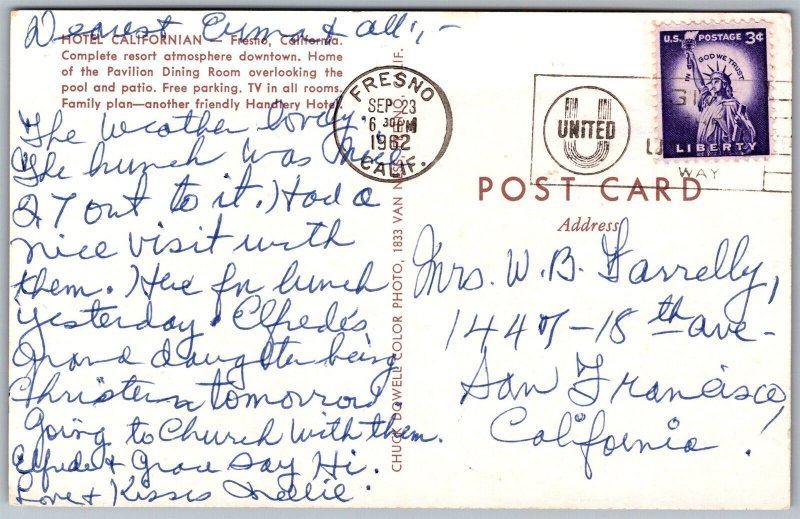 Dearest Erma & all;-
HOTEL CALIFORNIAN — Fresno, California.
Complete resort atmosphere downtown. Home
of the Pavilion Dining Room overlooking the
pool and patio. Free parking. TV in all rooms.
Family plan—another friendly Handlery Hotel.
The weather lovely.
The lunch was nice
27 out to it. Had a
nice visit with
them. Here for lunch
yesterday. Elfrede's
Grand daughter being
Christen tomorrow
going to Church with them.
Elfrede & Grace say Hi.
Love & Kisses
CHUCK DOWELL COLOR PHOTO, 1833 VAN NESS, FRESNO, CALIF.
FRESNO
SEP 23
6 30 PM
1962
CALIF.
UNITED
WAY
U.S. POSTAGE 3¢
IN GOD WE TRUST
LIBERTY
POST CARD
Address
Mrs. W. B. Farrelly,
1447-18th ave-
San Francisco,
California!